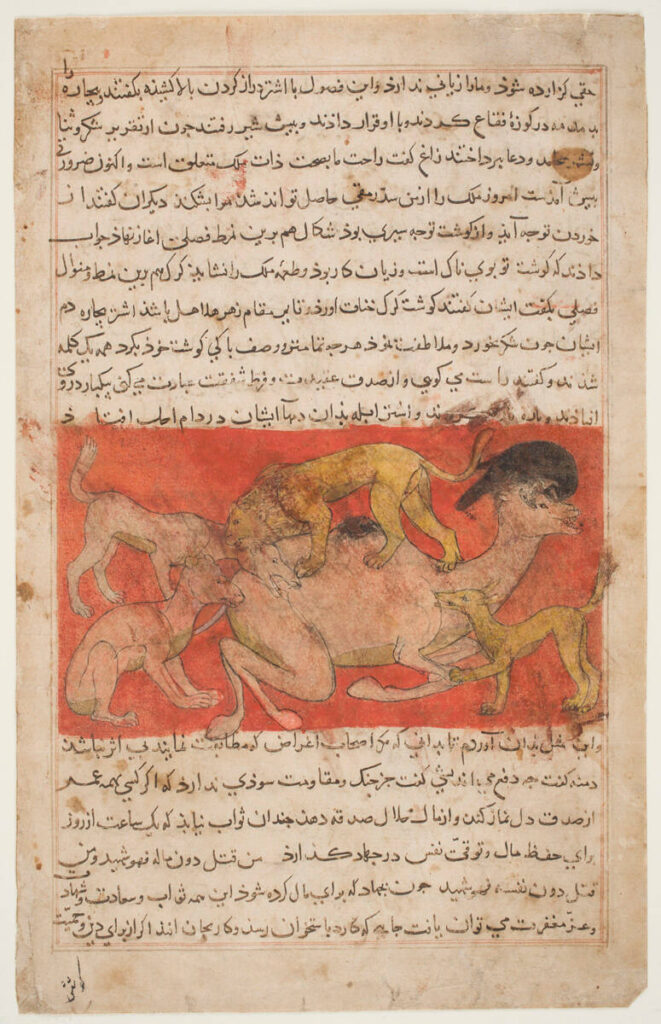 حقی کزارده شوذ و مارا زیانی ندارذ واین فصول با اشتر دراز کردن بالا کشیذه بکفتند و بیجاره را
بدمدمه در کوزهٔ فقاع کردند و با او قرار دادند و پیش شیر رفتند جون از تقریر شکر و ثنا
و دعا ببرداختند زاغ کفت راحت ما بصحت ذات ملک متعلق است و اکنون ضرورتی
پیش آمذست امروز ملک را از من سد رمقی حاصل تواند شذ مرا بشکند دیکران کفتند از
خوردن تو جه آیذ و از کوشت تو جه سیری بوذ شکال هم برین نمط فصلی اغاز نهاذ جواب
دادند که کوشت تو بوی ناک است و زیان کار بوذ و طعمهٔ ملک را نشایذ کرک هم برین نمط و منوال
فصلی بکفت ایشان کفتند کوشت کرک خناق اورد و قایم مقام زهر هلاهل باشذ اشتر بیجاره دم
ایشان جون شکر بخورد و ملاطفتی نموذ هرجه تمامتر و وصف باکی کوشت خوذ بکرد همه یک کلمه
شذند و کفتند راست می کویی و از صدق عقیدت و فرط شفقت عبارت می کنی بیکبار در وی
افتاذند و پاره کردند و اشتر ابله بذان دمهآ ایشان در دام اجل افتاذ
واین مثل بدان آوردم تا بدانی که مکر اصحاب اغراض که مطابقت نمایند بی اثر نباشذ
دمنه کفت جه دفع می اندیشی کفت جز جنک و مقاومت سوذی ندارذ که اکر کسی همه عمر
از صدق دل نماز کند و از مال حلال صدقه دهذ جندان ثواب نیابذ که یک ساعت از روز
برای حفظ مال و توقّی نفس در جهاد کذارذ من قتل دون ماله فهو شهید و من
قتل دون نفسه فهو شهید جون بجهاد که برای مال کرده شوذ این همه ثواب و سعادت و شهادت
و عزّ مغفرت می توان یافت جایی که کارد باستخوان رسذ و کار بجان افتذ اکر از برای دین و حمیّت